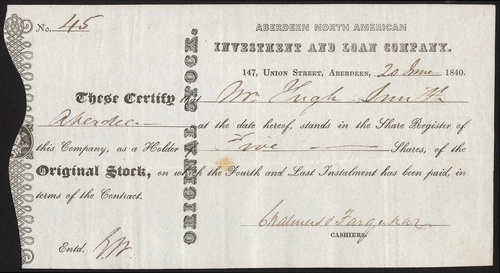 No. 45
ABERDEEN NORTH AMERICAN
INVESTMENT AND LOAN COMPANY.
147, UNION STREET, ABERDEEN, 20 June 1840.
ORIGINAL STOCK.
These Certify that Mr Hugh Smith
Aberdeen at the date hereof, stands in the Share Register of
this Company, as a Holder Five Shares, of the
Original Stock, on which the Fourth and Last Instalment has been paid, in
terms of the Contract.
Chalmers & Farquhar
CASHIERS.
Entd.